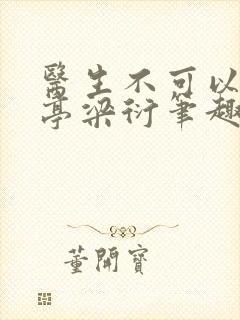 醫生不可以
亭梁衍筆趣
董開寶